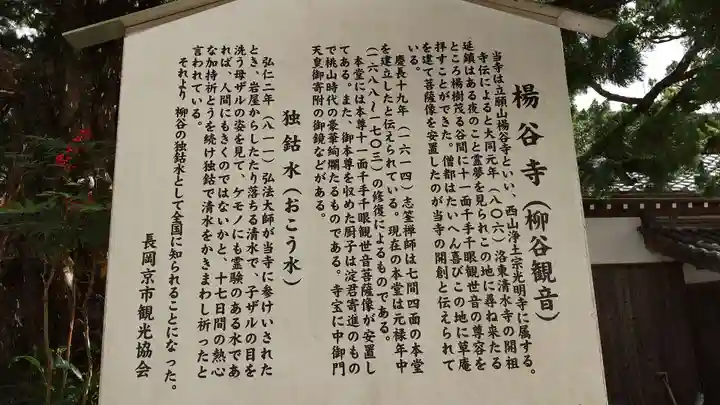 楊谷寺(柳谷観音)
当寺は立願山楊谷寺といい、西山浄土宗光明寺に属する。
寺伝によると大同元年(八〇六)洛東清水寺の開祖
延鎮はある夜のこと霊夢を見られこの地に尋ね来たる
ところ楊樹茂る谷間に十一面千手千眼観世音の尊容を
拝すことができた。僧都はたいへん喜びこの地に草庵
を建て菩薩像を安置したのが当寺の開創と伝えられて
いる。
慶長十九年(一六一四)志筌禅師は七間四面の本堂
を建立したと伝えられている。現在の本堂は元禄年中
(一六八八〜一七〇三)の修復によるものである。
本堂には本尊十一面千手千眼観世音菩薩像が安置し
てある。また、御本尊を収めた厨子は淀君寄進のもの
で桃山時代の豪華絢爛たるものである。寺宝に中御門
天皇御寄附の御鏡などがある。
独鈷水(おこう水)
弘仁二年(八一一)弘法大師が当寺に参けいされた
とき、岩屋からしたたり落ちる清水で、子ザルの目を
洗う母ザルの姿を見て、ケモノにも霊験のある水であ
れば、人間にもきくのではないかと、十七日間の熱心
な加持祈とうを続け独鈷で清水をかきまわし祈ったと
言われている。
それより 柳谷の独鈷水として全国に知られることになった。
長岡京市観光協会